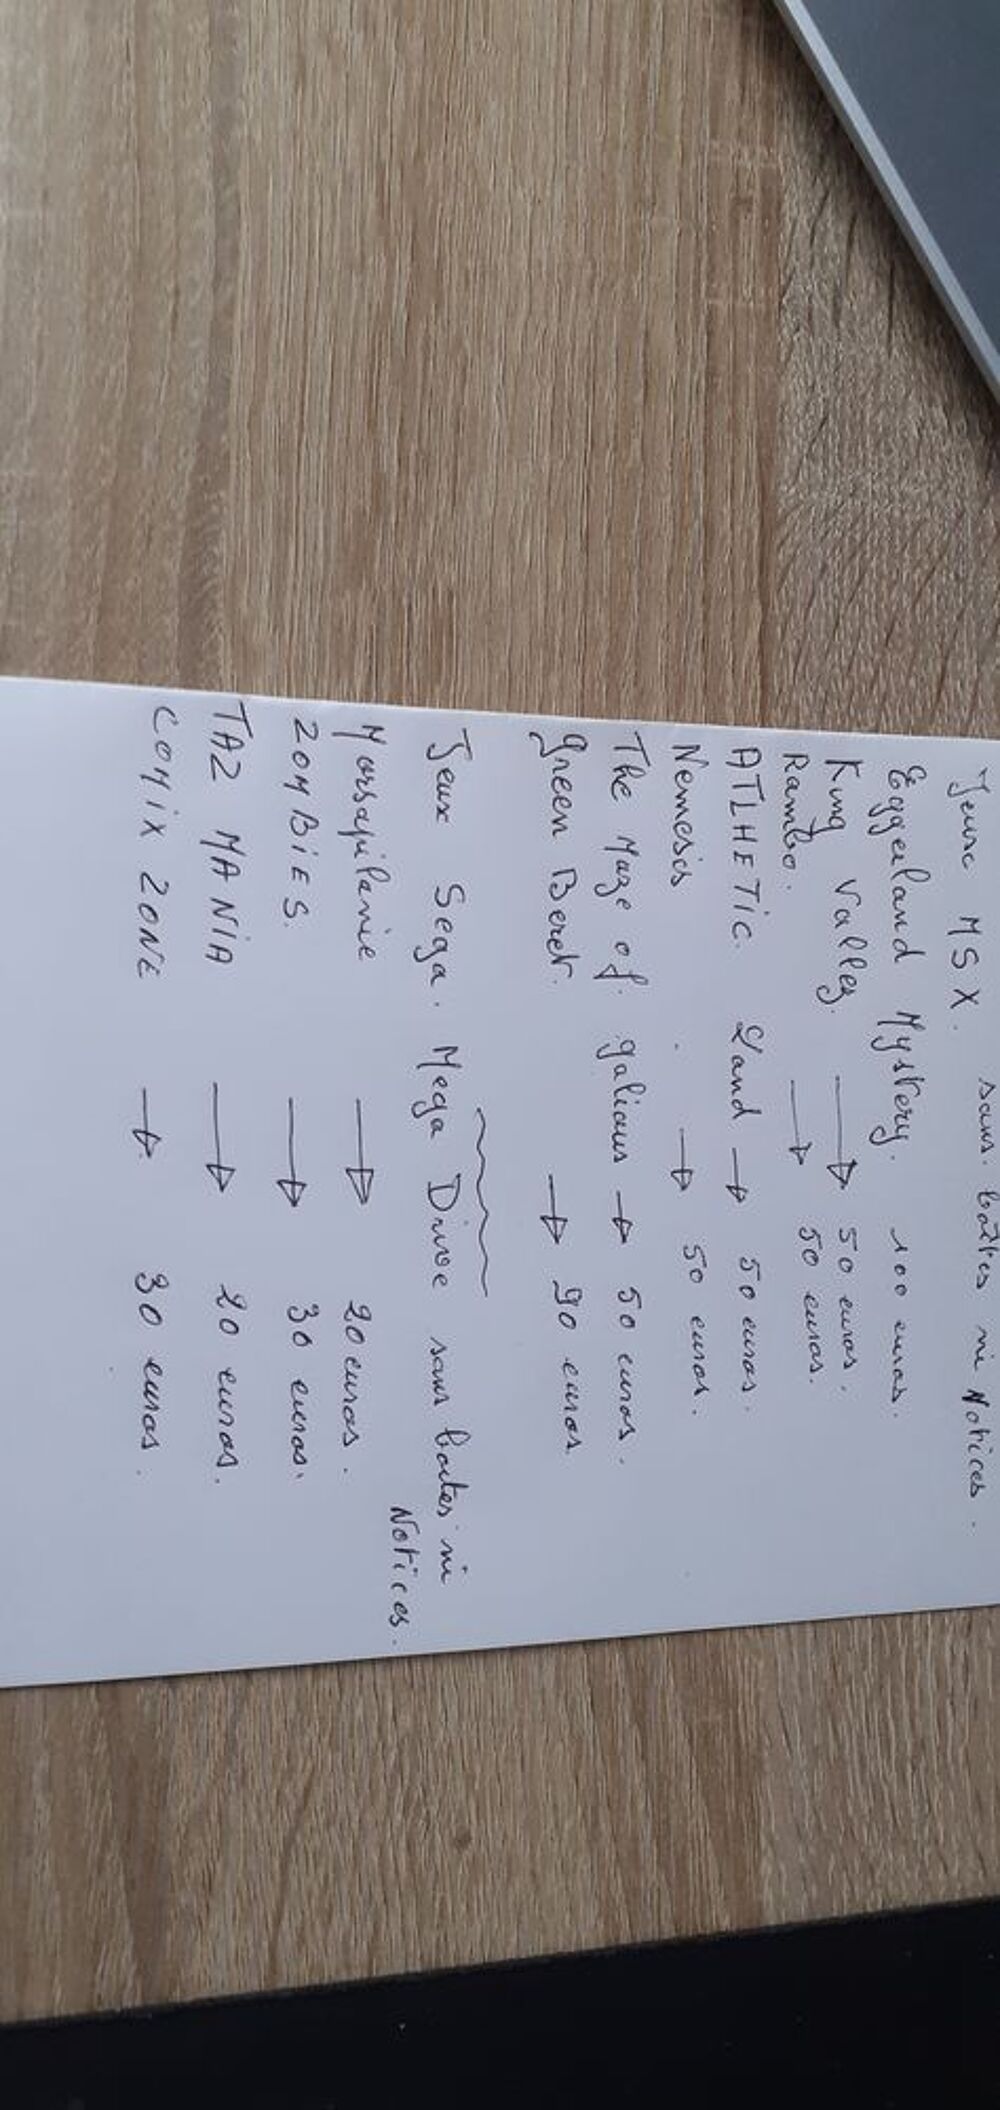 Jeux MSX. sans boîtes ni Notices.
Eggerland Mystery. 100 euros.
King Valley. → 50 euros.
Rambo. → 50 euros.
ATLHETIC. Land → 50 euros.
Nemesis → 50 euros.
The Maze of. galious → 50 euros.
green Beret. → 90 euros.
Jeux Sega. Mega Drive sans boites ni
Notices.
Marsupilamie → 20 euros.
ZOMBiES. → 30 euros.
TAZ MANiA → 20 euros.
COMiX ZONE → 30 euros.